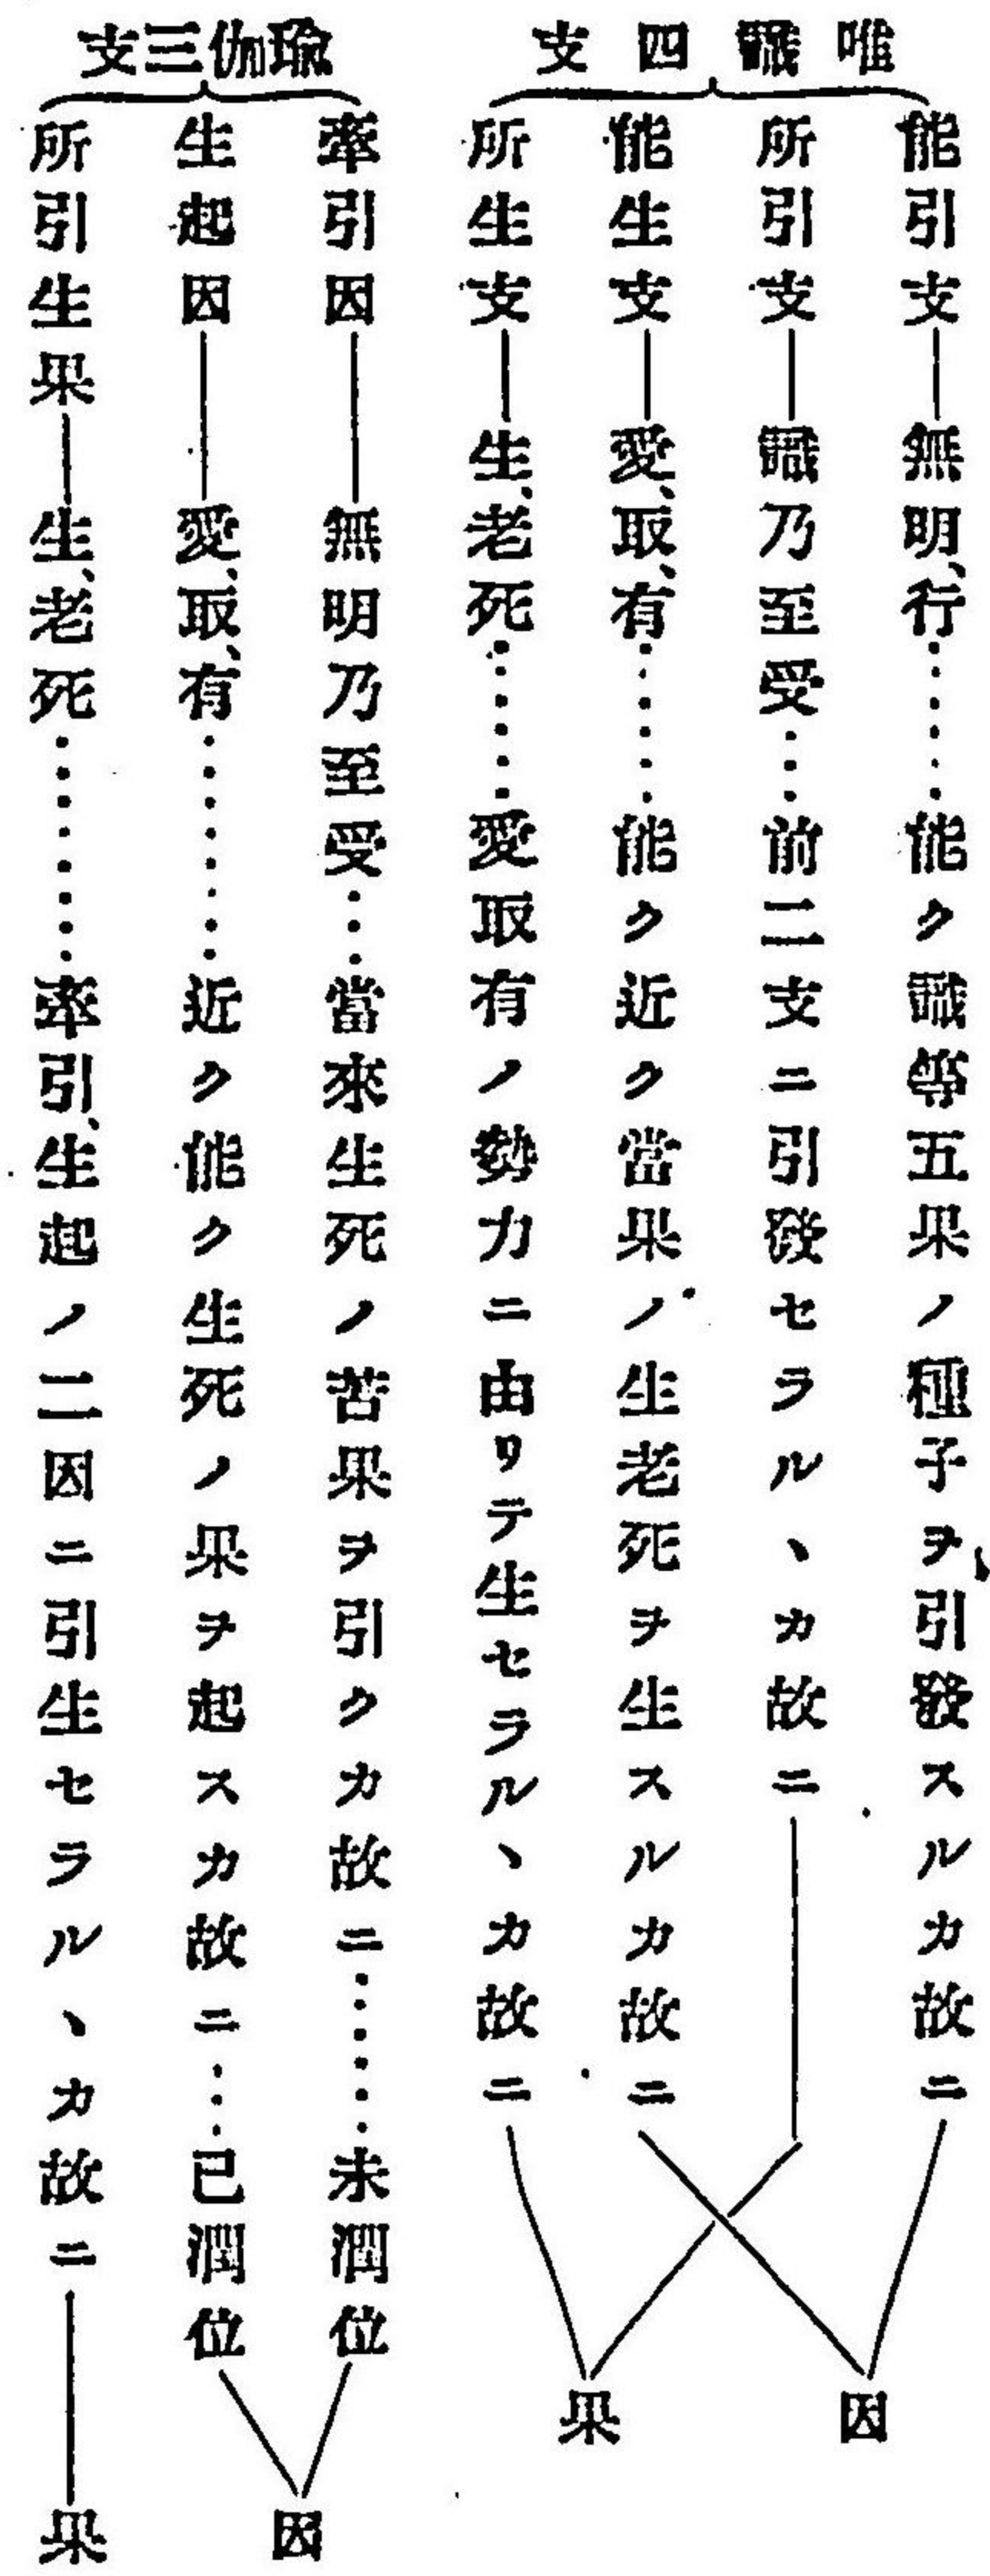 唯識四支
能引支―無明、行……能ク識等五果ノ種子ヲ引發スルカ故ニ
所引支―識乃至受……前二支ニ引發セラルヽカ故ニ
能生支―愛、取、有……能ク近ク當果ノ生老死ヲ生スルカ故ニ
所生支―生、老死……愛取有ノ勢力ニ由リテ生セラルヽカ故ニ
因
果
瑜伽三支
牽引因―無明乃至受……當來生死ノ苦果ヲ引クカ故ニ……未潤位
生起因―愛、取、有……近ク能ク生死ノ果ヲ起スカ故ニ……已潤位
所引生果―生、老死……牽引、生起ノ二因ニ引生セラルヽカ故ニ―果
因